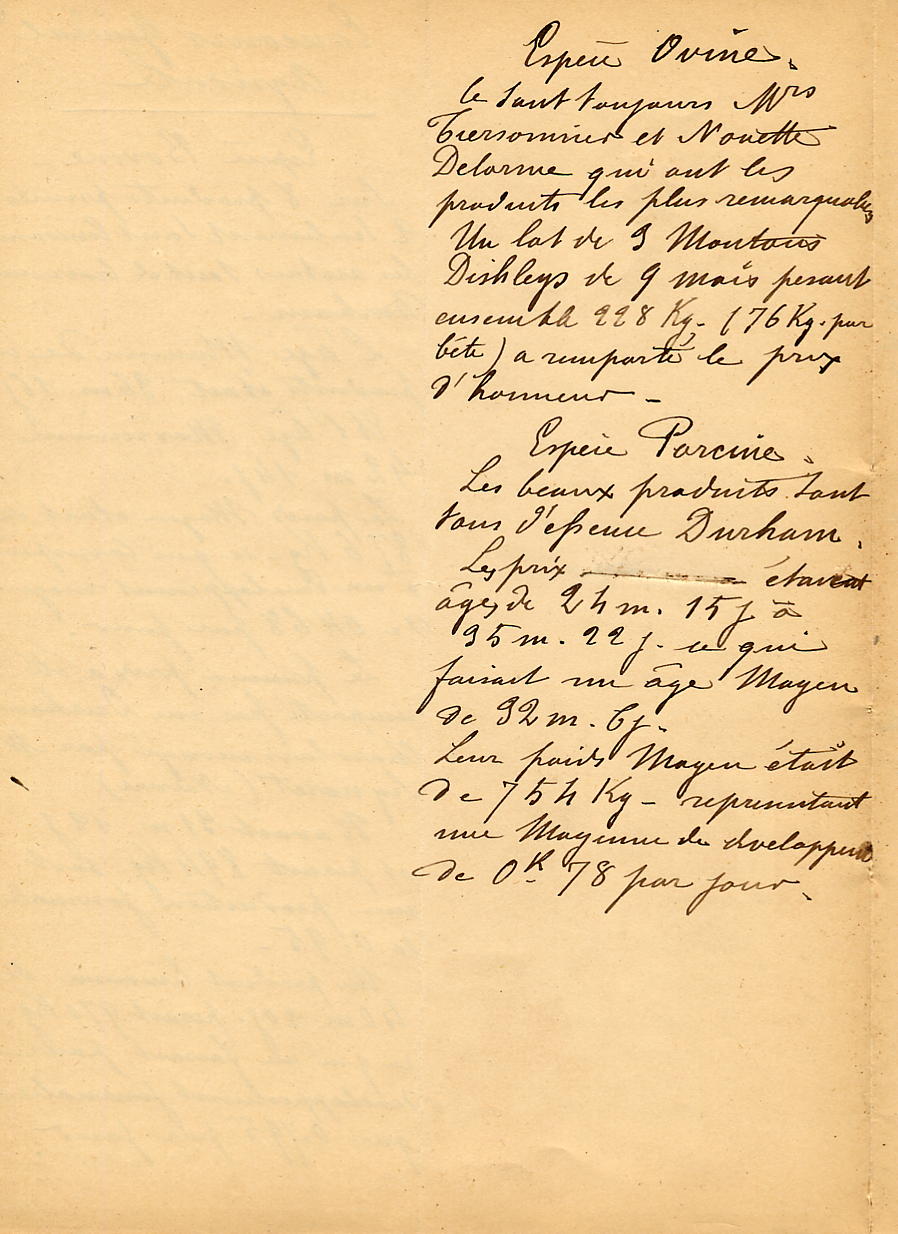 Espèce Ovine.
Ce sont toujours Mrs
Tiersonnier et Nouette
Delorme qui ont les
produits les plus remarquables
Un lot de 3 Moutons
Dishleys de 9 mois pesant
ensemble 228 Kg. (76 Kg. par
bête) a remporté le prix
d'honneur _
Espèce Porcine.
Les beaux produits sont
tous d'essence Durham.
Les prix étaient
âgés de 24 m. 15 j à
35 m. 22 j. ce qui
faisait un âge Moyen
de 32 m. 6 j.
Leur poids Moyen était
de 754 Kg _ representant
une Moyenne de
de 0k. 78 par jour.